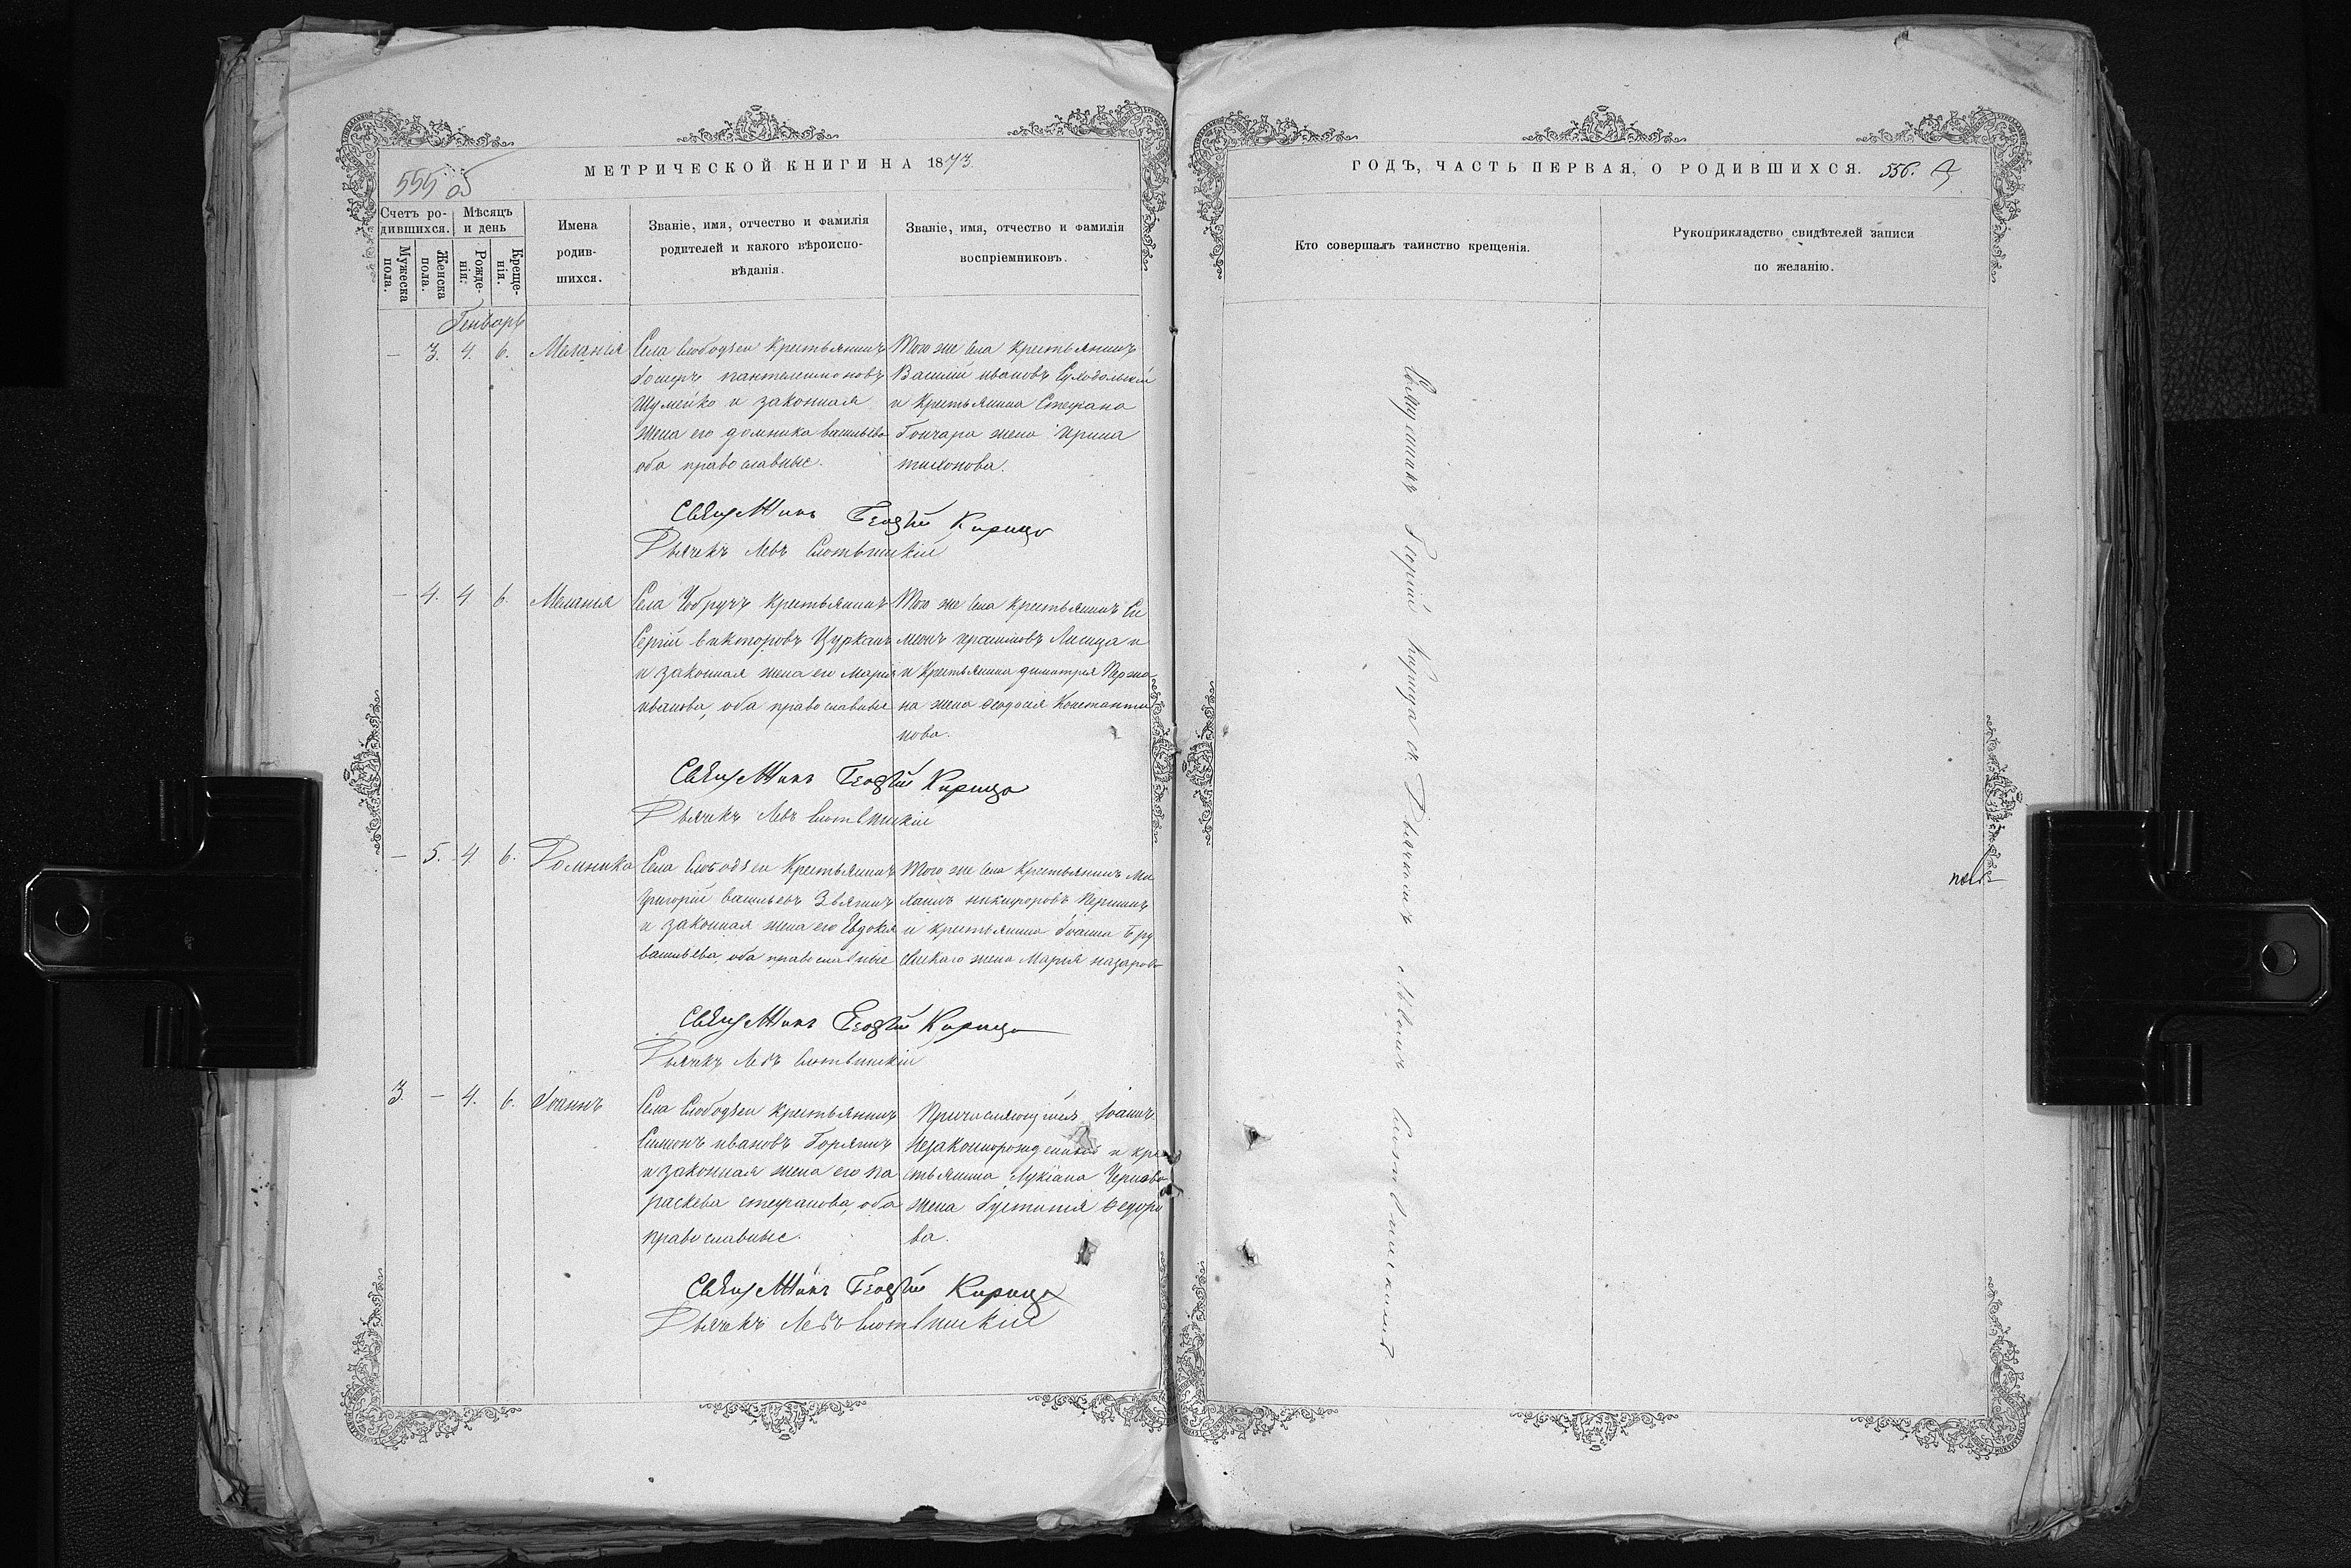 МЕТРИЧЕСКОЙ КНИГИ НА 1873.
555 об
Счетъ ро-
дившихся.
Мѣсяцъ
и день
Мужеска
пола.
Женска
пола.
Рожде-
нія.
Креще-
нія.
Имена
родив-
шихся.
Званіе, имя, отчество и фамилія
родителей и какого вѣроиспо-
вѣданія.
Званіе, имя, отчество и фамилія
воспріемниковъ.
Генварь
— 3. 4. 6. Меланія
Села Слободзеи крестьянинъ
пантелешоновъ
Шумейко и законная
жена его домника васильева
оба православные.
Того же села крестьянинъ
Василий ивановъ Суходольскій
и крестьянина Стефана
Гончара жена ирина
тихонова.
Священникъ Георгій Кирица
Дьячекъ Левъ
— 4. 4 6. Меланія
Села Чобручъ крестьянинъ
Сергій викторовъ Цурканъ
и законная жена его Марія
иванова, оба православные
Того же села крестьянинъ Си
меонъ Лисица и
и крестьянина димитрія
на жена Ѳеодосія Константи
нова.
Священникъ Георгій Кирица
Дьячекъ Левъ
— 5. 4 6. Домника
Села Слободзеи крестьянинъ
Григорій васильевъ Звягинъ
и законная жена его Евдокія
васильева, оба православные
Того же села крестьянинъ Ми
хаилъ никифоровъ
и крестьянина Іоанна Бру
жена Марія назарова
Священникъ Георгій Кирица
Дьячекъ Левъ
3. — 4. 6. Іоаннъ
Села Слободзеи крестьянинъ
Симеонъ ивановъ Горянъ
и законная жена его па
раскева стефанова, оба
православные.
Іоаннъ
Незаконнорожденный и кре
стьянина Лукіана
жена Іустинія Ѳедоро
ва.
Священникъ Георгій Кирица
Дьячекъ Левъ
ГОДЪ, ЧАСТЬ ПЕРВАЯ, О РОДИВШИХСЯ. 556.
Кто совершалъ таинство крещенія.
Рукоприкладство свидѣтелей записи
по желанію.
Священникъ Георгій Кирица съ Дьячкомъ